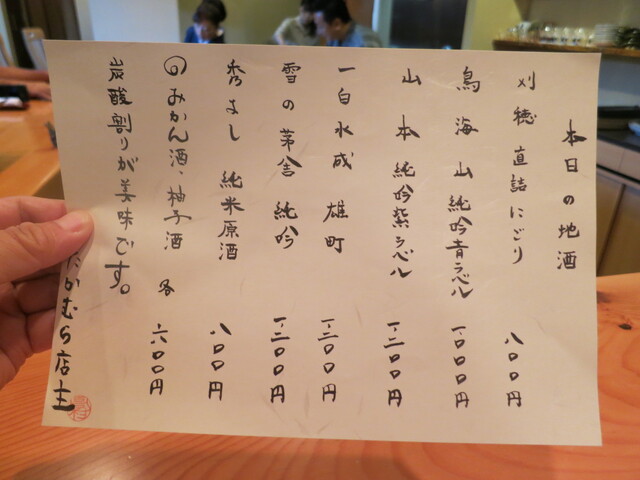 本日の地酒
刈穂 直詰にごり 八〇〇円
鳥海山 純吟青ラベル 一、〇〇〇円
山本 純吟紫ラベル 一、二〇〇円
一白水成 雄町 一、二〇〇円
雪の茅舎 純吟 一、二〇〇円
秀よし 純米原酒 八〇〇円
のみかん酒、柚子酒 各 六〇〇円
炭酸割りが美味です。
たかむら店主